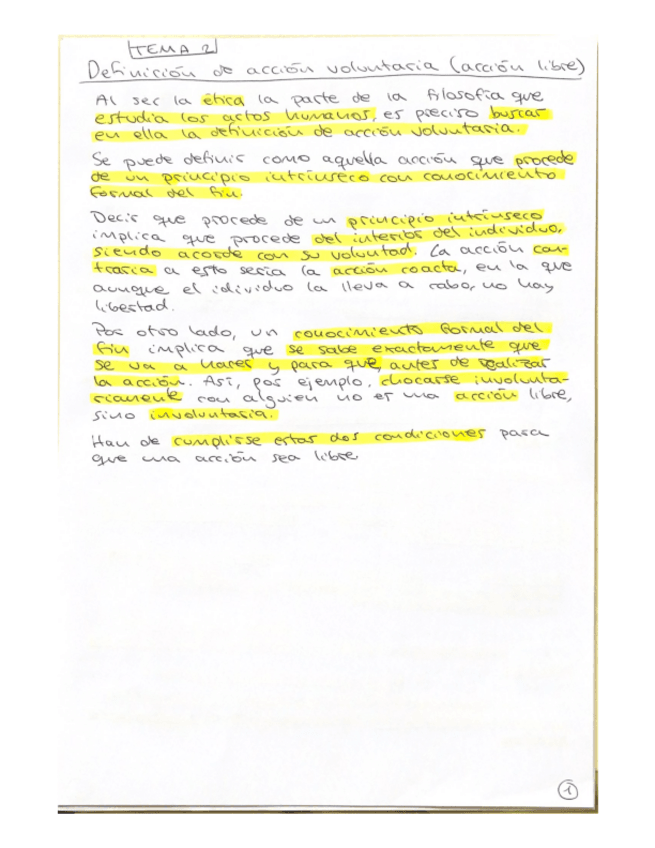 TEMA 2
Definición de acción voluntaria (acción libre)
Al ser la ética la parte de la filosofía que
estudia los actos humanos, es preciso buscar
en ella la definición de acción voluntaria.
Se puede definir como aquella acción que procede
de un principio intrínseco con conocimiento
formal del fin.
Decir que procede de un principio intrínseco
implica que procede del interior del individuo,
siendo acorde con su voluntad. La acción con-
traria a esto sería la acción coacta, en la que
aunque el idividuo la lleva a cabo, no hay
libertad.
Por otro lado, un conocimiento formal del
fin implica que se sabe exactamente que
se va a hacer y para que, antes de realizar
la acción. Así, por ejemplo, chocarse involunta-
riamente con alguien no es una acción libre,
sino involuntaria.
Han de cumplirse estas dos condiciones para
que una acción sea libre
1